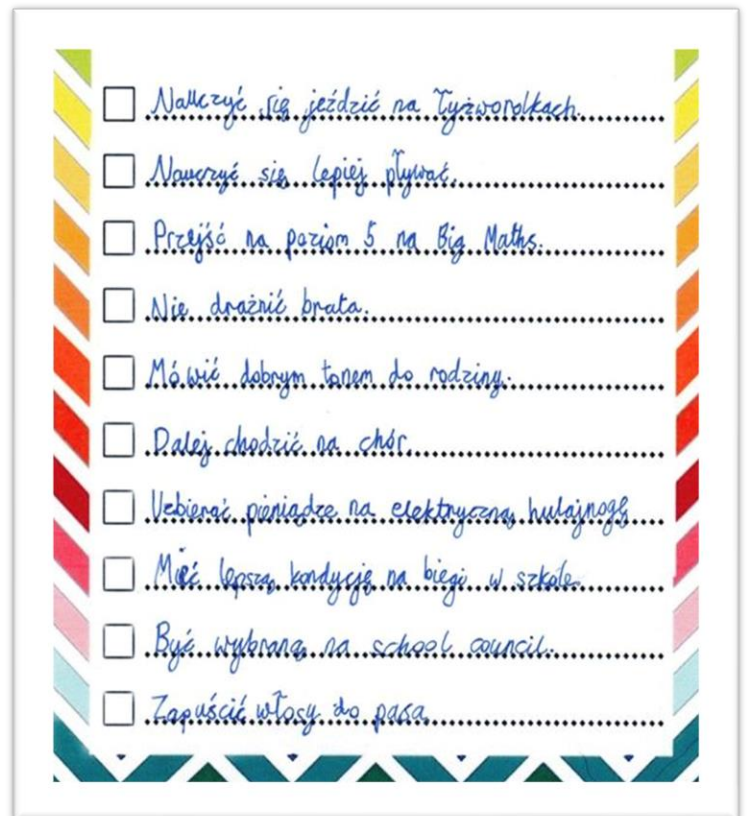 Nauczyć się jeździć na łyżworolkach.
Nauczyć się lepiej pływać.
Przejść na poziom 5 na Big Maths.
Nie drażnić brata.
Mówić dobrym tonem do rodziny.
Dalej chodzić na chór.
Uzbierać pieniądze na elektryczną hulajnogę
Mieć lepszą kondycję na biegi w szkole.
Być wybraną na school council.
Zapuścić włosy do pasa.